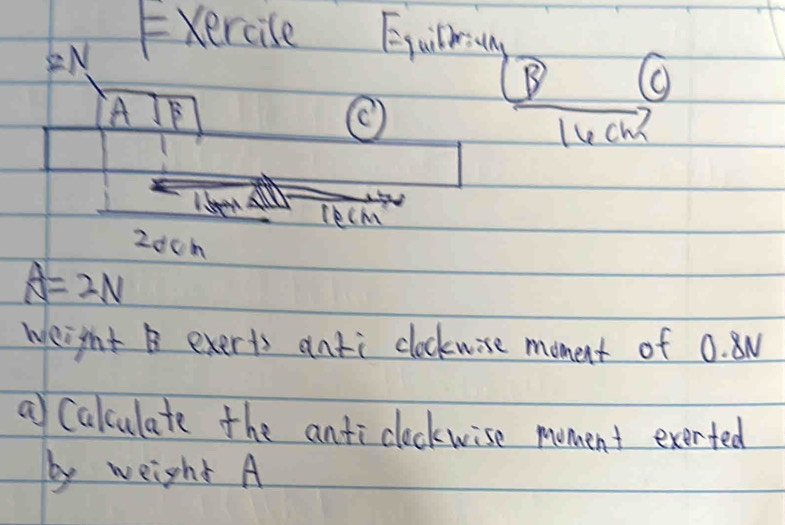 Exercise Equilibrium
=N
B C
A B C
16cm
16cm
20cm
A=2N
weight B exerts anti clockwise moment of 0.8N
a) Calculate the anti clockwise moment exerted
by weight A